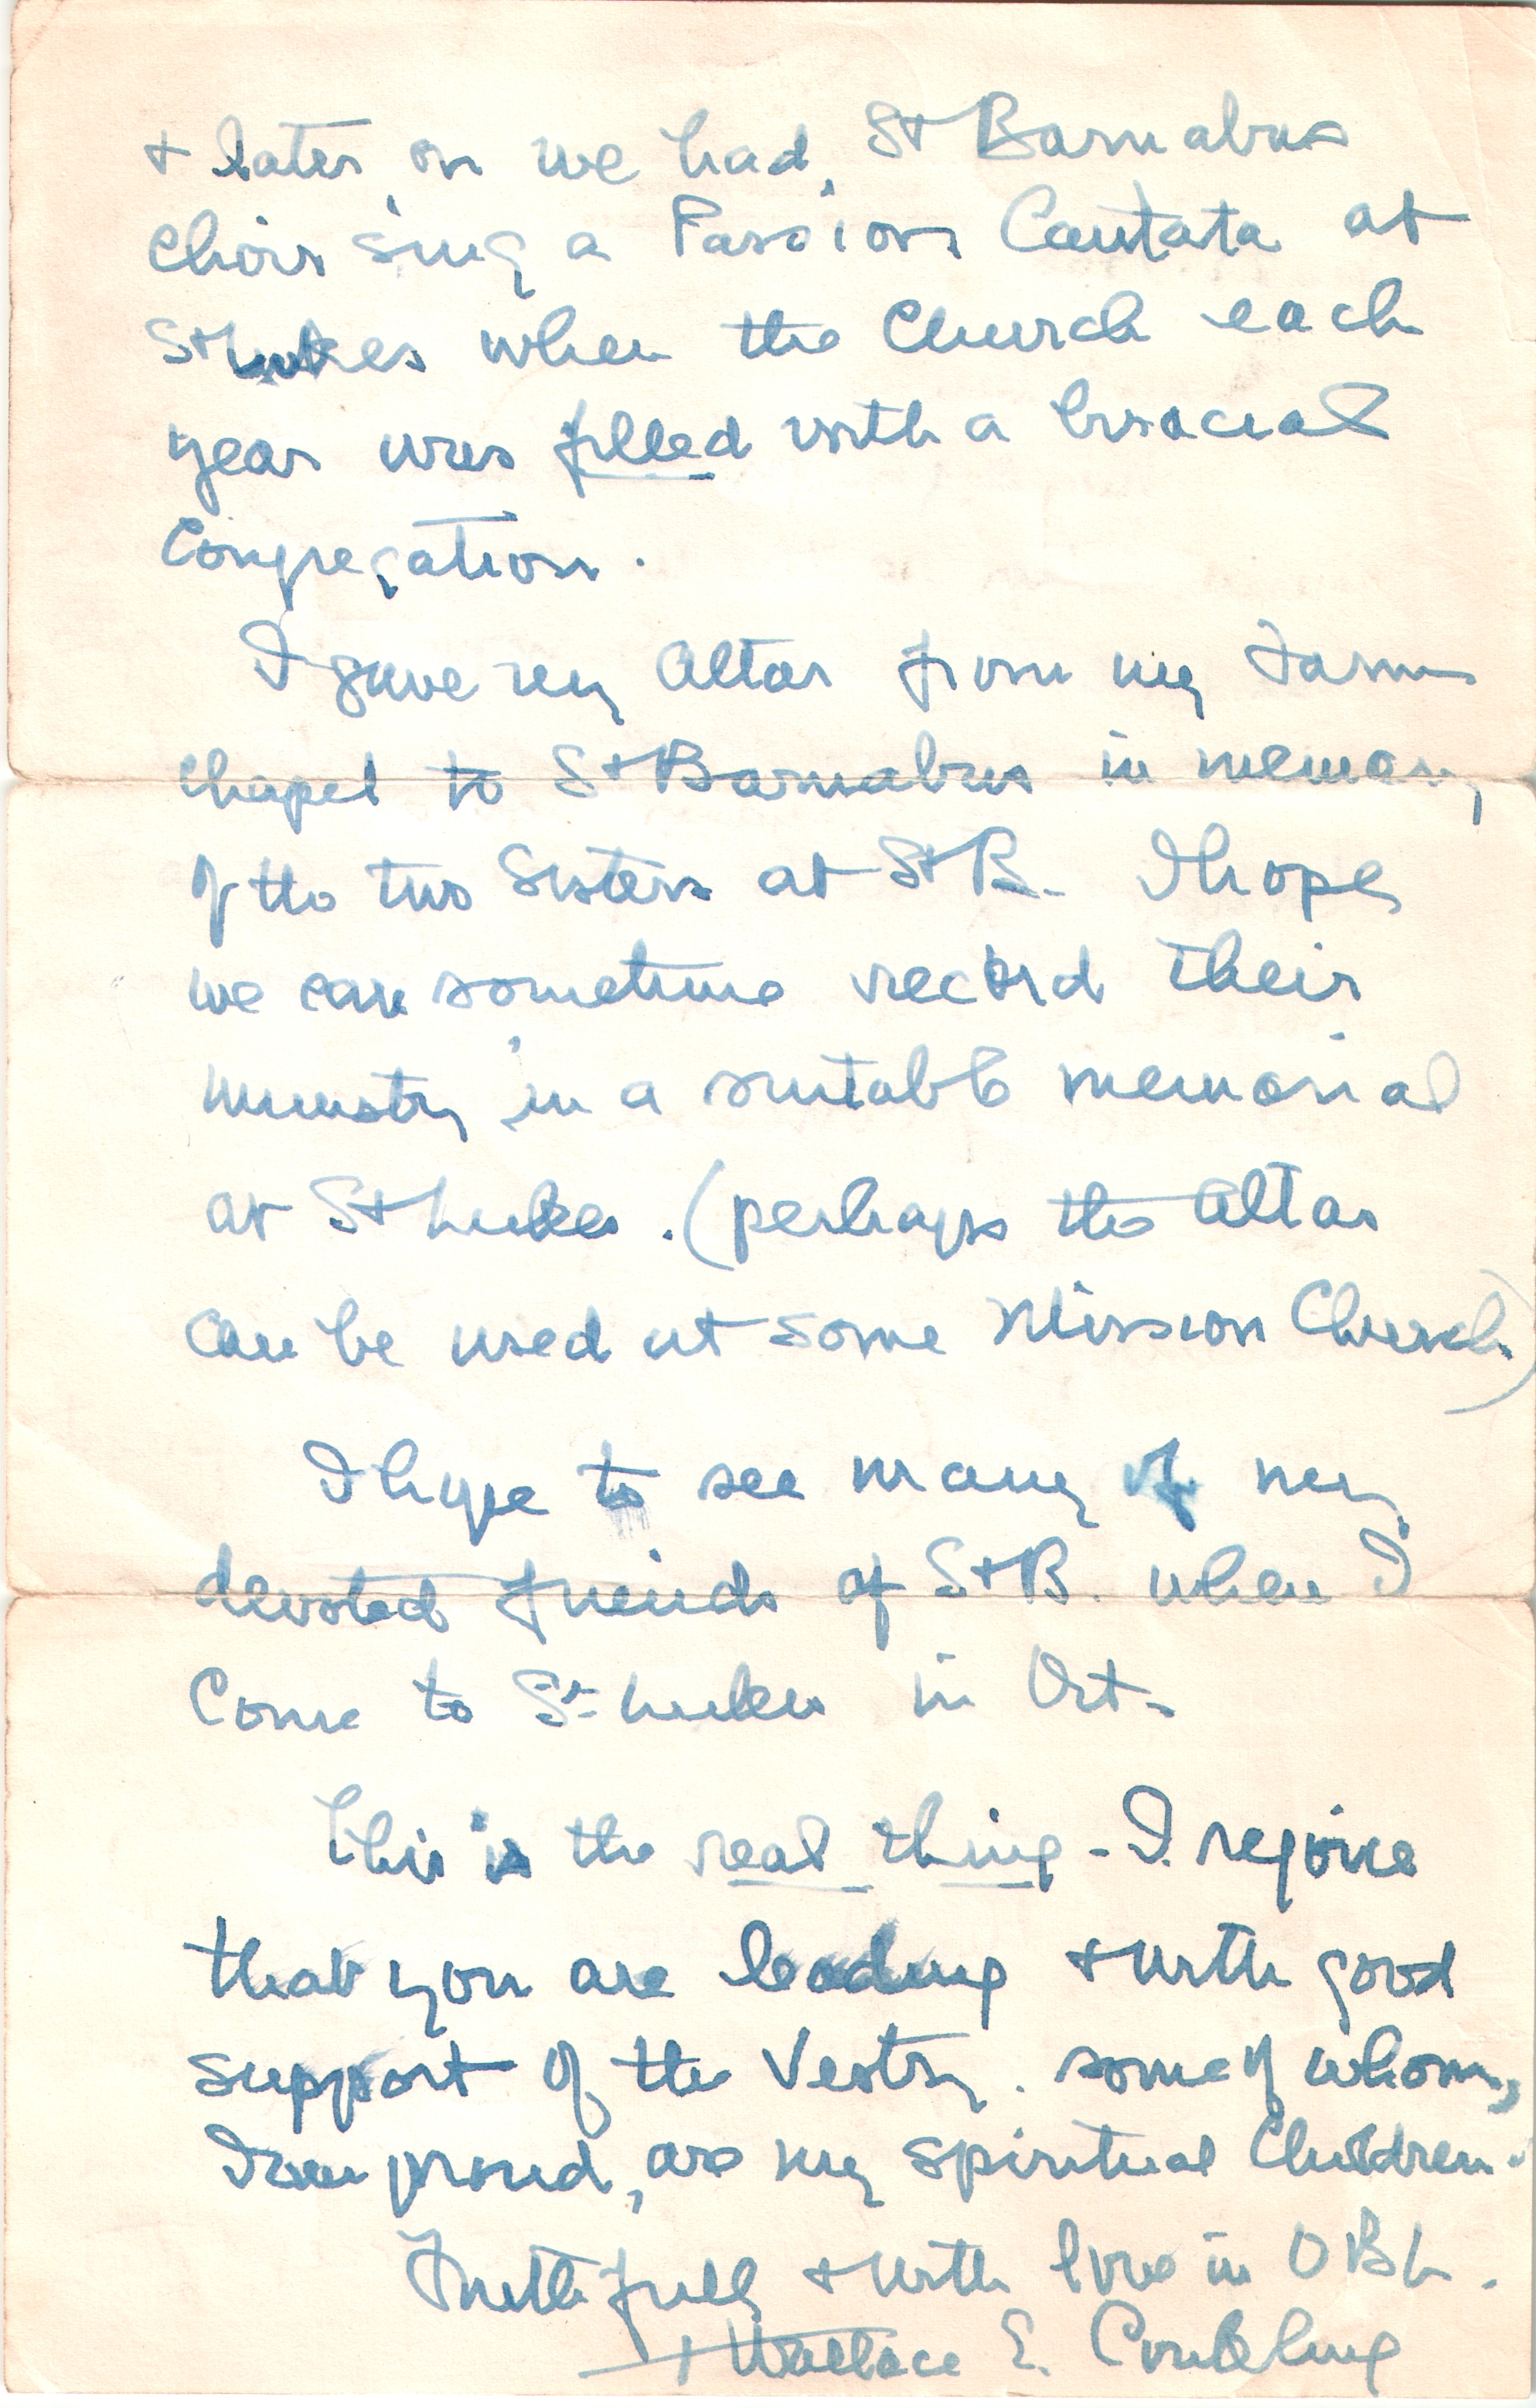 + later on we had, St Barnabas
Choir sing a Passion Cantata at
St Lukes when the Church each
year was filled with a biracial
Congregation.
I gave my Altar from my Farm
Chapel to St Barnabas in memory
of the two Sisters at St B. I hope
we can sometime record their
ministry in a suitable memorial
at St Lukes. (perhaps the Altar
can be used at some Mission Church)
I hope to see many of my
devoted friends of St B. when I
come to St Lukes in Oct.
This is the real thing - I rejoice
that you are leading + with good
support of the Vestry. some of whom,
I am proud, are my spiritual Children.
Faithfully + with love in OBL.
+ Wallace E. Conkling